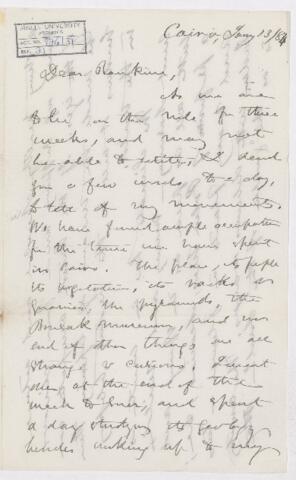 McGILL UNIVERSITY
ARCHIVES
ACC. NO.
REF.
Cairo, Jany 13/84
Dear Rankine,
As we are
to be on the Nile for three
weeks, and may not
be able to write, I send
you a few words to day,
to tell of my movements.
We have found ample occupation
for the time we have spent
in Cairo. The place, its people
its vegetation, its rocks &
quarries, the pyramids, the
Boulak museum, and no
end of other things are all
strange & curious. I went
also at the end of the
week to Suez, and spent
a day studying its geology
besides making up to my